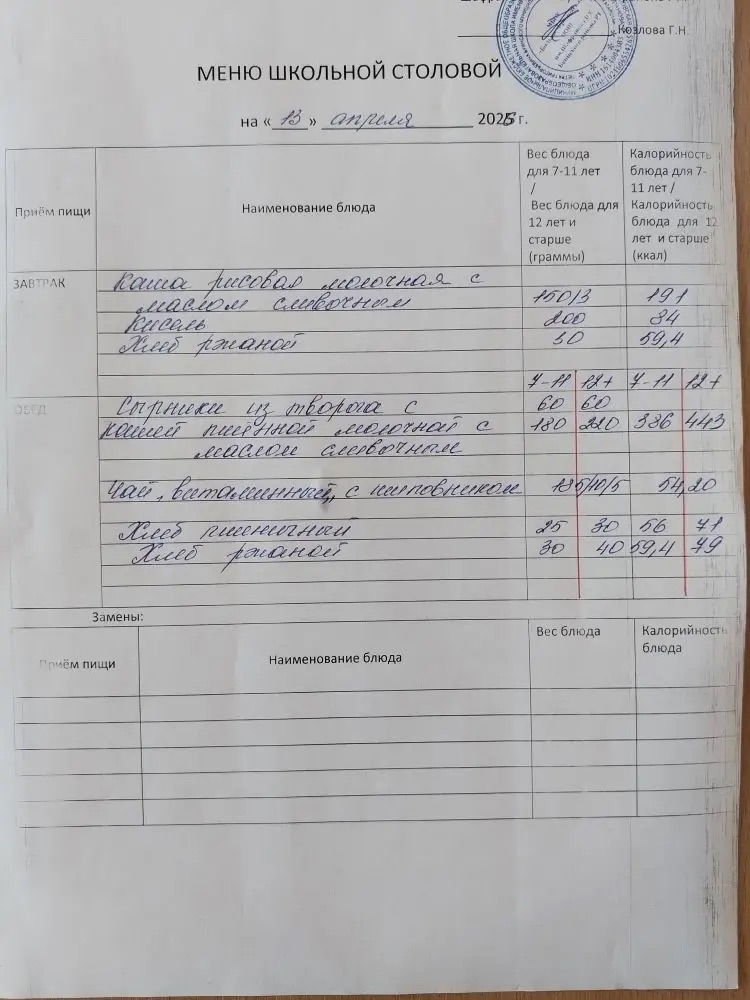 Козлова Г.Н.
МЕНЮ ШКОЛЬНОЙ СТОЛОВОЙ
на « 13 » апреля 2026 г.
Приём пищи
Наименование блюда
Вес блюда
для 7-11 лет
/
Вес блюда для
12 лет и
старше
(граммы)
Калорийность
блюда для 7-
11 лет /
Калорийность
блюда для 12
лет и старше
(ккал)
ЗАВТРАК
Каша рисовая молочная с
маслом сливочным 150/3 191
Кисель 200 84
Хлеб ржаной 30 59,4
7-11 12+ 7-11 12+
ОБЕД
Сырники из творога с 60 60
кашей пшенной молочной с 180 220 386 443
маслом сливочным
Чай „витаминный„ с шиповником 185/10/5 54,20
Хлеб пшеничный 25 30 56 71
Хлеб ржаной 30 40 59,4 79
Замены:
Приём пищи
Наименование блюда
Вес блюда
Калорийность
блюда